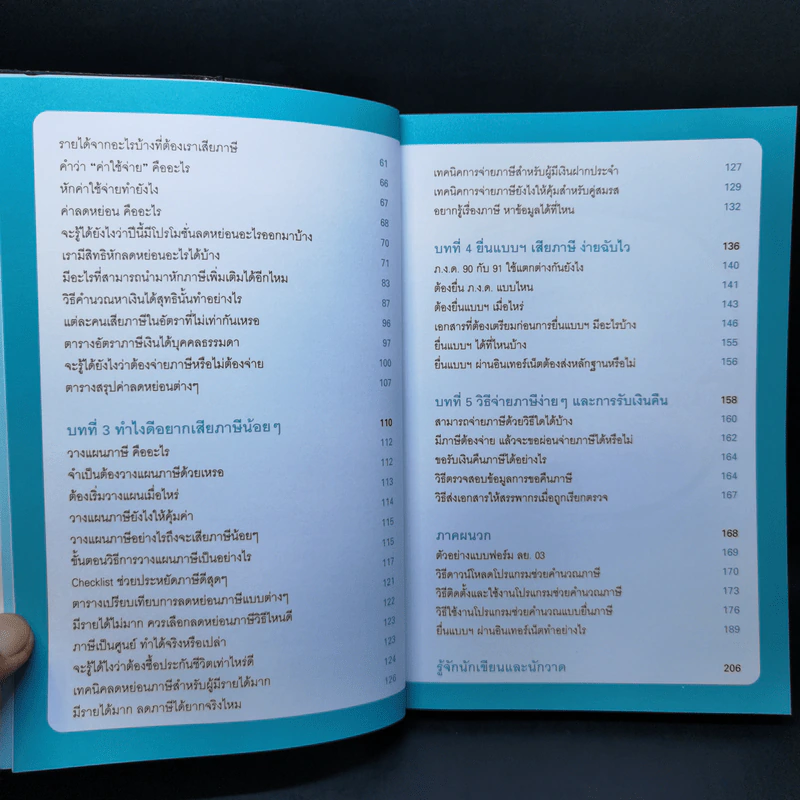 รายได้จากอะไรบ้างที่ต้องเราเสียภาษี 61
คำว่า “ค่าใช้จ่าย” คืออะไร 66
หักค่าใช้จ่ายทำยังไง 67
ค่าลดหย่อน คืออะไร 68
จะรู้ได้ยังไงว่าปีนี้มีโปรโมชั่นลดหย่อนอะไรออกมาบ้าง 70
เรามีสิทธิหักลดหย่อนอะไรได้บ้าง 71
มีอะไรที่สามารถนำมาหักภาษีเพิ่มเติมได้อีกไหม 83
วิธีคำนวณหาเงินได้สุทธินั้นทำอย่างไร 87
แต่ละคนเสียภาษีในอัตราที่ไม่เท่ากันเหรอ 96
ตารางอัตราภาษีเงินได้บุคคลธรรมดา 97
จะรู้ได้ยังไงว่าต้องจ่ายภาษีหรือไม่ต้องจ่าย 100
ตารางสรุปค่าลดหย่อนต่างๆ 107
บทที่ 3 ทำไงดีอยากเสียภาษีน้อยๆ 110
วางแผนภาษี คืออะไร 112
จำเป็นต้องวางแผนภาษีด้วยเหรอ 112
ต้องเริ่มวางแผนเมื่อไหร่ 113
วางแผนภาษียังไงให้คุ้มค่า 114
วางแผนภาษีอย่างไรถึงจะเสียภาษีน้อยๆ 115
ขั้นตอนวิธีการวางแผนภาษีเป็นอย่างไร 115
Checklist ช่วยประหยัดภาษีดีสุดๆ 117
ตารางเปรียบเทียบการลดหย่อนภาษีแบบต่างๆ 121
มีรายได้ไม่มาก ควรเลือกลดหย่อนภาษีวิธีไหนดี 122
ภาษีเป็นศูนย์ ทำได้จริงหรือเปล่า 123
จะรู้ได้ไงว่าต้องซื้อประกันชีวิตเท่าไหร่ดี 123
เทคนิคลดหย่อนภาษีสำหรับผู้มีรายได้มาก 124
มีรายได้มาก ลดภาษีได้ยากจริงไหม 126
เทคนิคการจ่ายภาษีสำหรับผู้มีเงินฝากประจำ 127
เทคนิคการจ่ายภาษียังไงให้คุ้มสำหรับคู่สมรส 129
อยากรู้เรื่องภาษี หาข้อมูลได้ที่ไหน 132
บทที่ 4 ยื่นแบบฯ เสียภาษี ง่ายฉับไว 136
ภ.ง.ด. 90 กับ 91 ใช้แตกต่างกันยังไง 140
ต้องยื่น ภ.ง.ด. แบบไหน 141
ต้องยื่นแบบฯ เมื่อไหร่ 143
เอกสารที่ต้องเตรียมก่อนการยื่นแบบฯ มีอะไรบ้าง 146
ยื่นแบบฯ ได้ที่ไหนบ้าง 155
ยื่นแบบฯ ผ่านอินเทอร์เน็ตต้องส่งหลักฐานหรือไม่ 156
บทที่ 5 วิธีจ่ายภาษีง่ายๆ และการรับเงินคืน 158
สามารถจ่ายภาษีด้วยวิธีใดได้บ้าง 160
มีภาษีต้องจ่าย แล้วจะขอผ่อนจ่ายภาษีได้หรือไม่ 162
ขอรับเงินคืนภาษีได้อย่างไร 164
วิธีตรวจสอบข้อมูลการขอคืนภาษี 164
วิธีส่งเอกสารให้สรรพากรเมื่อถูกเรียกตรวจ 167
ภาคผนวก 168
ตัวอย่างแบบฟอร์ม ลย. 03 169
วิธีดาวน์โหลดโปรแกรมช่วยคำนวณภาษี 170
วิธีติดตั้งและใช้งานโปรแกรมช่วยคำนวณภาษี 173
วิธีใช้งานโปรแกรมช่วยคำนวณแบบยื่นภาษี 176
ยื่นแบบฯ ผ่านอินเทอร์เน็ตทำอย่างไร 189
รู้จักนักเขียนและนักวาด 206